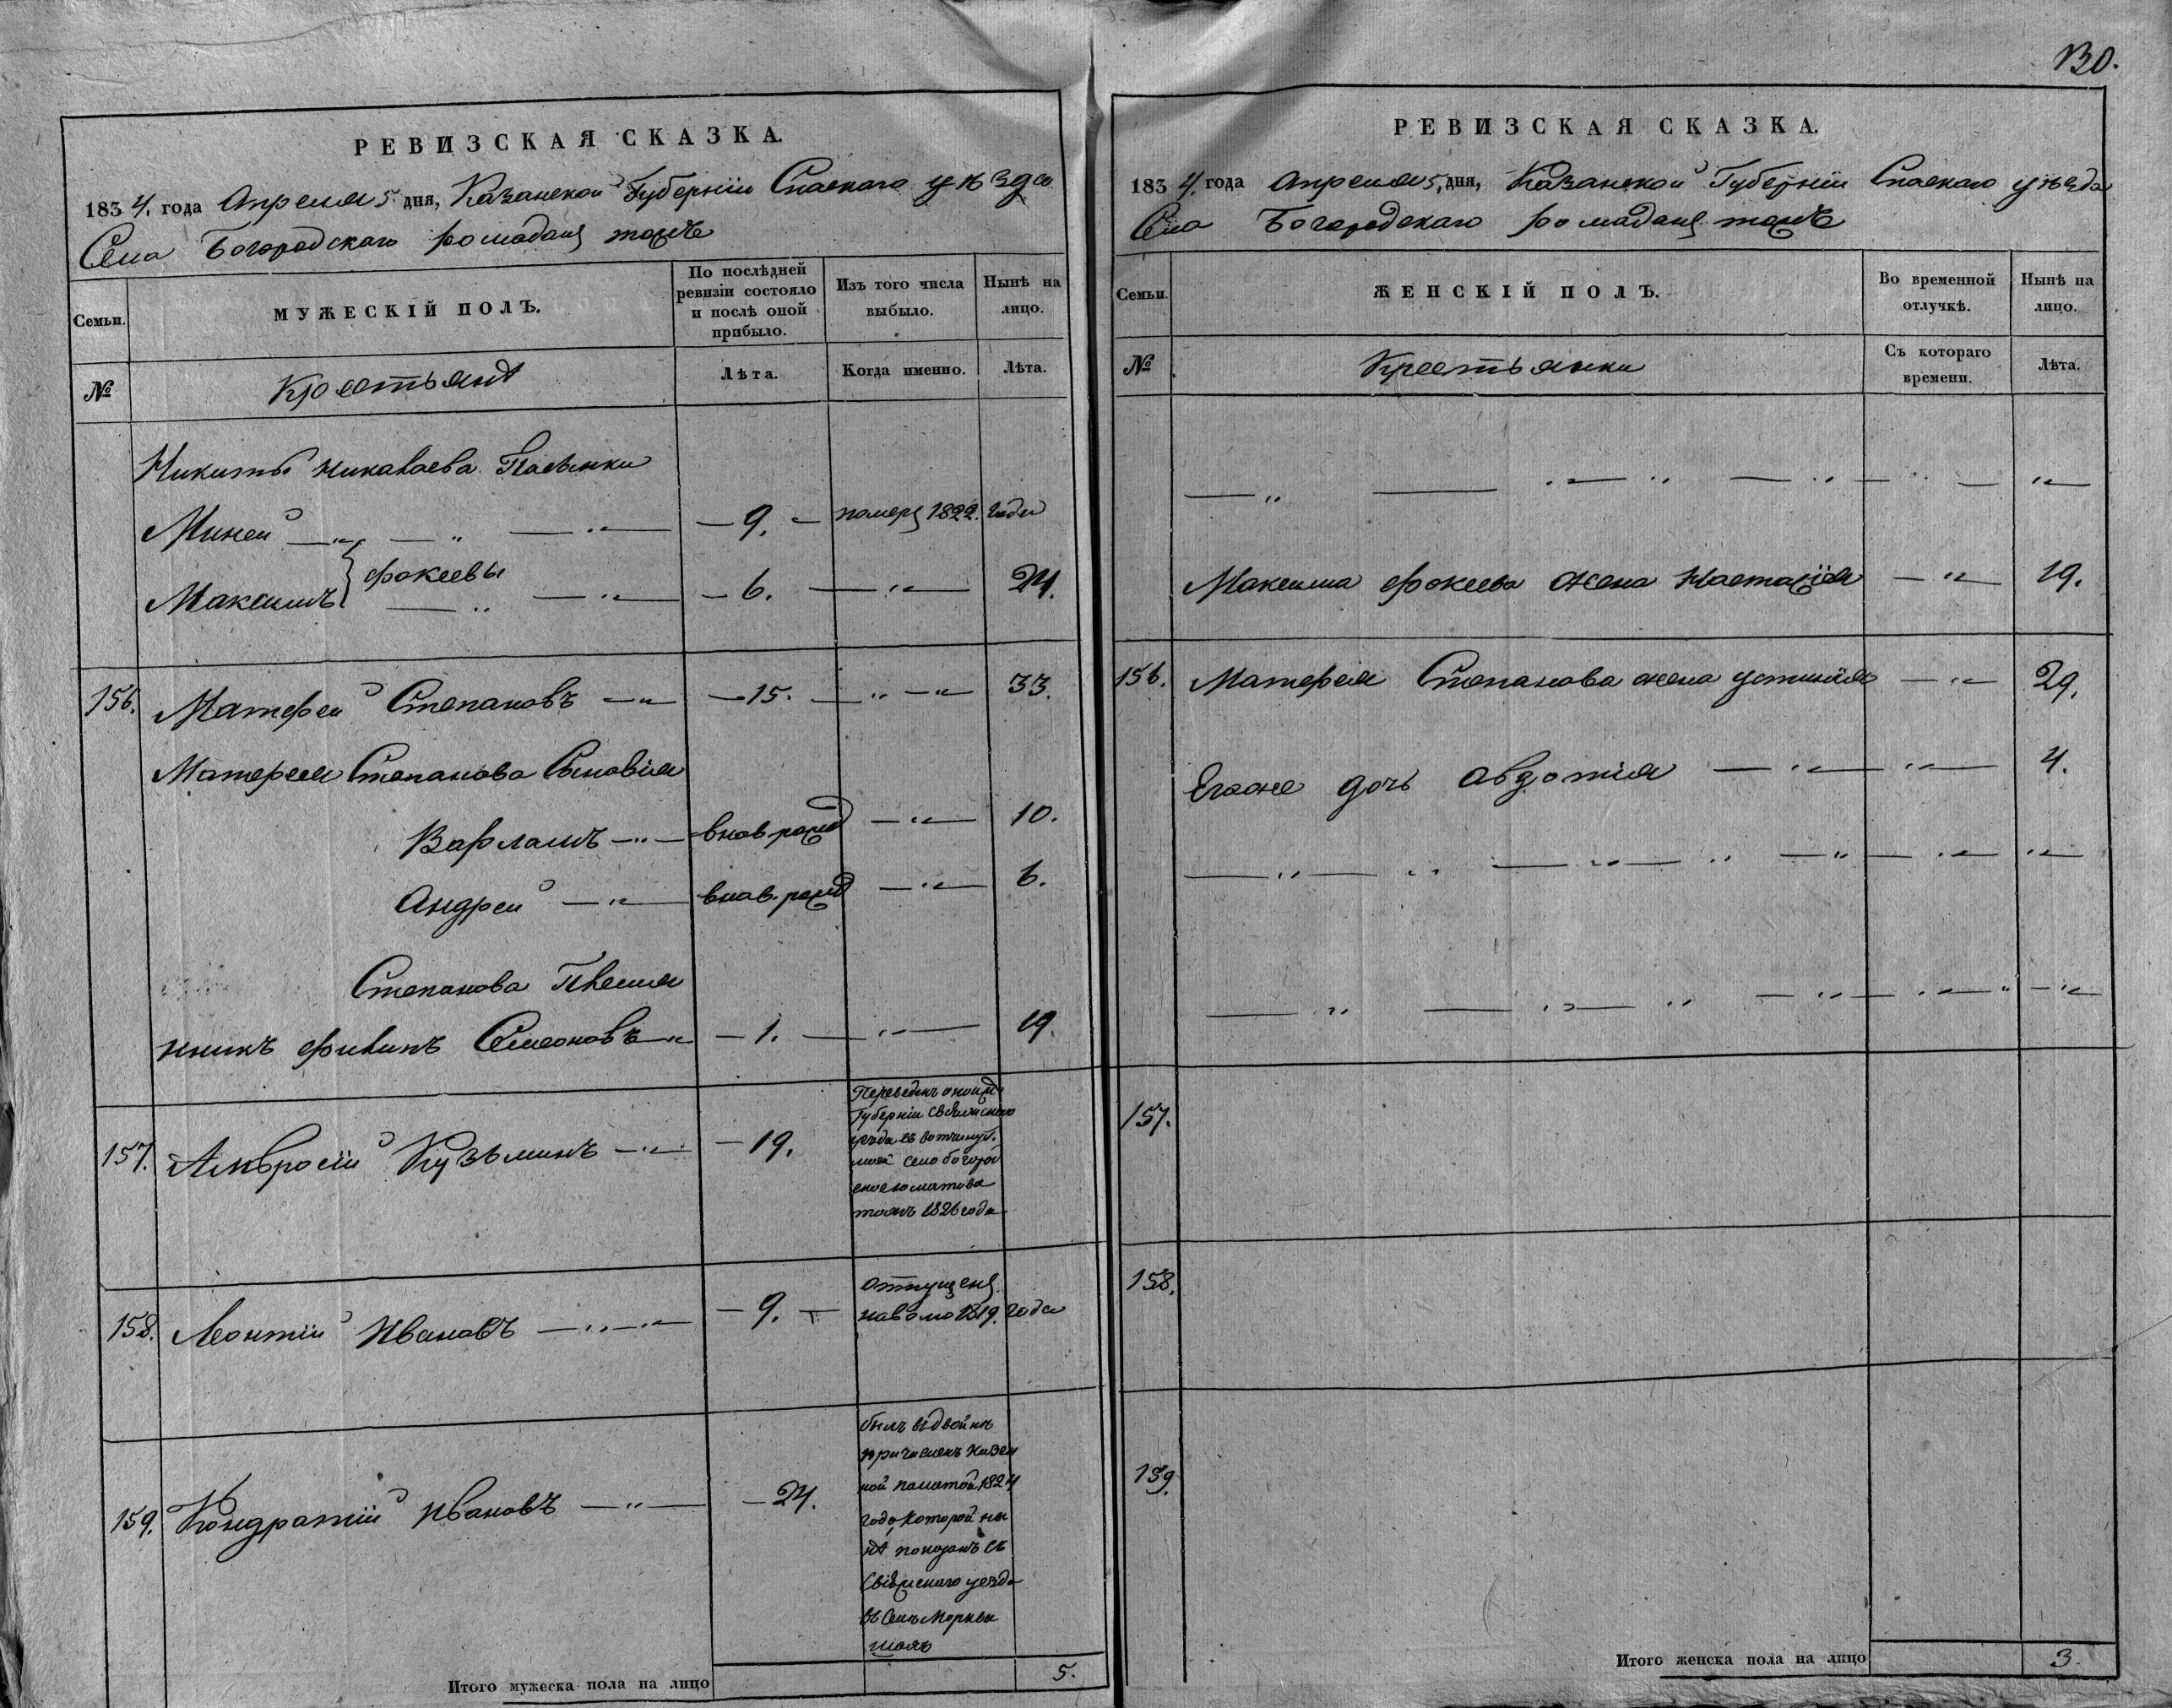 130.
РЕВИЗСКАЯ СКАЗКА.
1834. года Апреля 5 дня, Казанской Губерніи Спаскаго уѣзда
Села Богородскаго ромадан тожъ
Семьи.
МУЖЕСКІЙ ПОЛЪ.
По послѣдней ревизіи состояло и послѣ оной прибыло.
Изъ того числа выбыло.
Нынѣ на лицо.
№
Крестьянѣ
Лѣта.
Когда именно.
Лѣта.
Никиты Никалаева Пасынки
Миней — 9. — помер 1822. года
Максимъ } Фокеевы — 6. — 24.
156. Матфей Степановъ — 15. — 33.
Матфея Степанова Сыновія
Варламъ — внов рожд — 10.
Андрей — внов. рожд — 6.
Степанова Племя
нникъ Филипъ Семоновъ — 1. — 19.
157. Амвросіи Кузьминъ — 19.
Переведенъ оной
Губерніи Свіяжскаго
уѣзда въ вотчину
село богород
ское
тожъ 1826 года
158. Леонтіи Ивановъ — 9. —
отпущен
наволю 1819. года
159. Кондратіи Ивановъ — 24.
былъ вдвойнѣ
причисленъ Казен
ной палатой 1824
года которой ны
нѣ показанъ
Свіяжскаго уезда
въ Селѣ Моркваш
тожъ
Итого мужеска пола на лицо 5.
РЕВИЗСКАЯ СКАЗКА.
1834. года Апреля 5, дня, Казанской Губерніи Спаскаго уѣзда
Села Богородскаго ромадан тожъ
Семьи.
ЖЕНСКІЙ ПОЛЪ.
Во временной отлучкѣ.
Нынѣ на лицо.
№
Крестьянки
Съ котораго времени.
Лѣта.
Максима Фокеева жена Настасія — 19.
156. Матфея Степанова жена устинія — 29.
Егоже дочь Авдотія — 4.
157.
158.
159.
Итого женска пола на лицо 3.